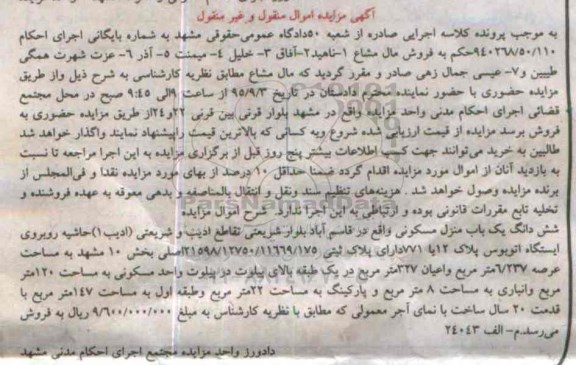 آگهی مزایده اموال منقول و غیر منقول
به موجب پرونده کلاسه اجرایی صادره از شعبه ۵۰دادگاه عمومی‌حقوقی مشهد به شماره بایگانی اجرای احکام
۹۴۰۲۶۸/۵۰/۱۱۰حکم به فروش مال مشاع ۱-ناهید۲-آفاق ۳- خلیل ۴- میمنت ۵- آذر ۶- عزت شهرت همگی
طبیبن و۷- عیسی جمال زهی صادر و مقرر گردید که مال مشاع مطابق نظریه کارشناسی به شرح ذیل واز طریق
مزایده حضوری با حضور نماینده محترم دادستان در تاریخ ۹۵/۹/۳ از ساعت ۹الی ۹:۴۵ صبح در محل مجتمع
قضائی اجرای احکام مدنی واحد مزایده واقع در مشهد بلوار قرنی بین قرنی ۲۲و۲۴از طریق مزایده حضوری به
فروش برسد مزایده از قیمت ارزیابی شده شروع وبه کسانی که بالاترین قیمت راپیشنهاد نمایند واگذار خواهد شد
طالبین به خرید می‌توانند جهت کسب اطلاعات بیشتر پنج روز قبل از برگزاری مزایده به این اجرا مراجعه تا نسبت
به بازدید آنان از اموال مورد مزایده اقدام گردد ضمنا حداقل ۱۰ درصد از بهای مورد مزایده نقدا و فی‌المجلس از
برنده مزایده وصول خواهد شد . هزینه‌های تنظیم سند ونقل و انتقال بالمناصفه و بدهی معوقه به عهده فروشنده و
تخلیه تابع مقررات قانونی بوده و ارتباطی به این اجرا ندارد. شرح اموال مزایده
شش دانگ یک باب منزل مسکونی واقع در قاسم آباد بلوار شریعتی تقاطع ادیب و شریعتی (ادیب۱)حاشیه روبروی
ایستگاه اتوبوس پلاک ۱۲یا ۷۷۱دارای پلاک ثبتی ۲۱۵۹۸/۱۲۷۵۰/۱۱۶۶۹/۱۷۵اصلی بخش ۱۰ مشهد به مساحت
عرصه ۶/۲۳۷متر مربع واعیان ۳۲۷متر مربع در یک طبقه بالای پیلوت در پیلوت واحد مسکونی به مساحت ۱۲۰متر
مربع وانباری به مساحت ۸ متر مربع و پارکینگ به مساحت ۲۲متر مربع وطبقه اول به مساحت ۱۴۷متر مربع با
قدمت ۲۰ سال ساخت با نمای آجر معمولی که مطابق با نظریه کارشناس به مبلغ ۹/۶۰۰/۰۰۰/۰۰۰ ریال به فروش
می‌رسد.م- الف ۲۴۰۴۳
دادورز واحد مزایده مجتمع اجرای احکام مدنی مشهد
ParsNamadData